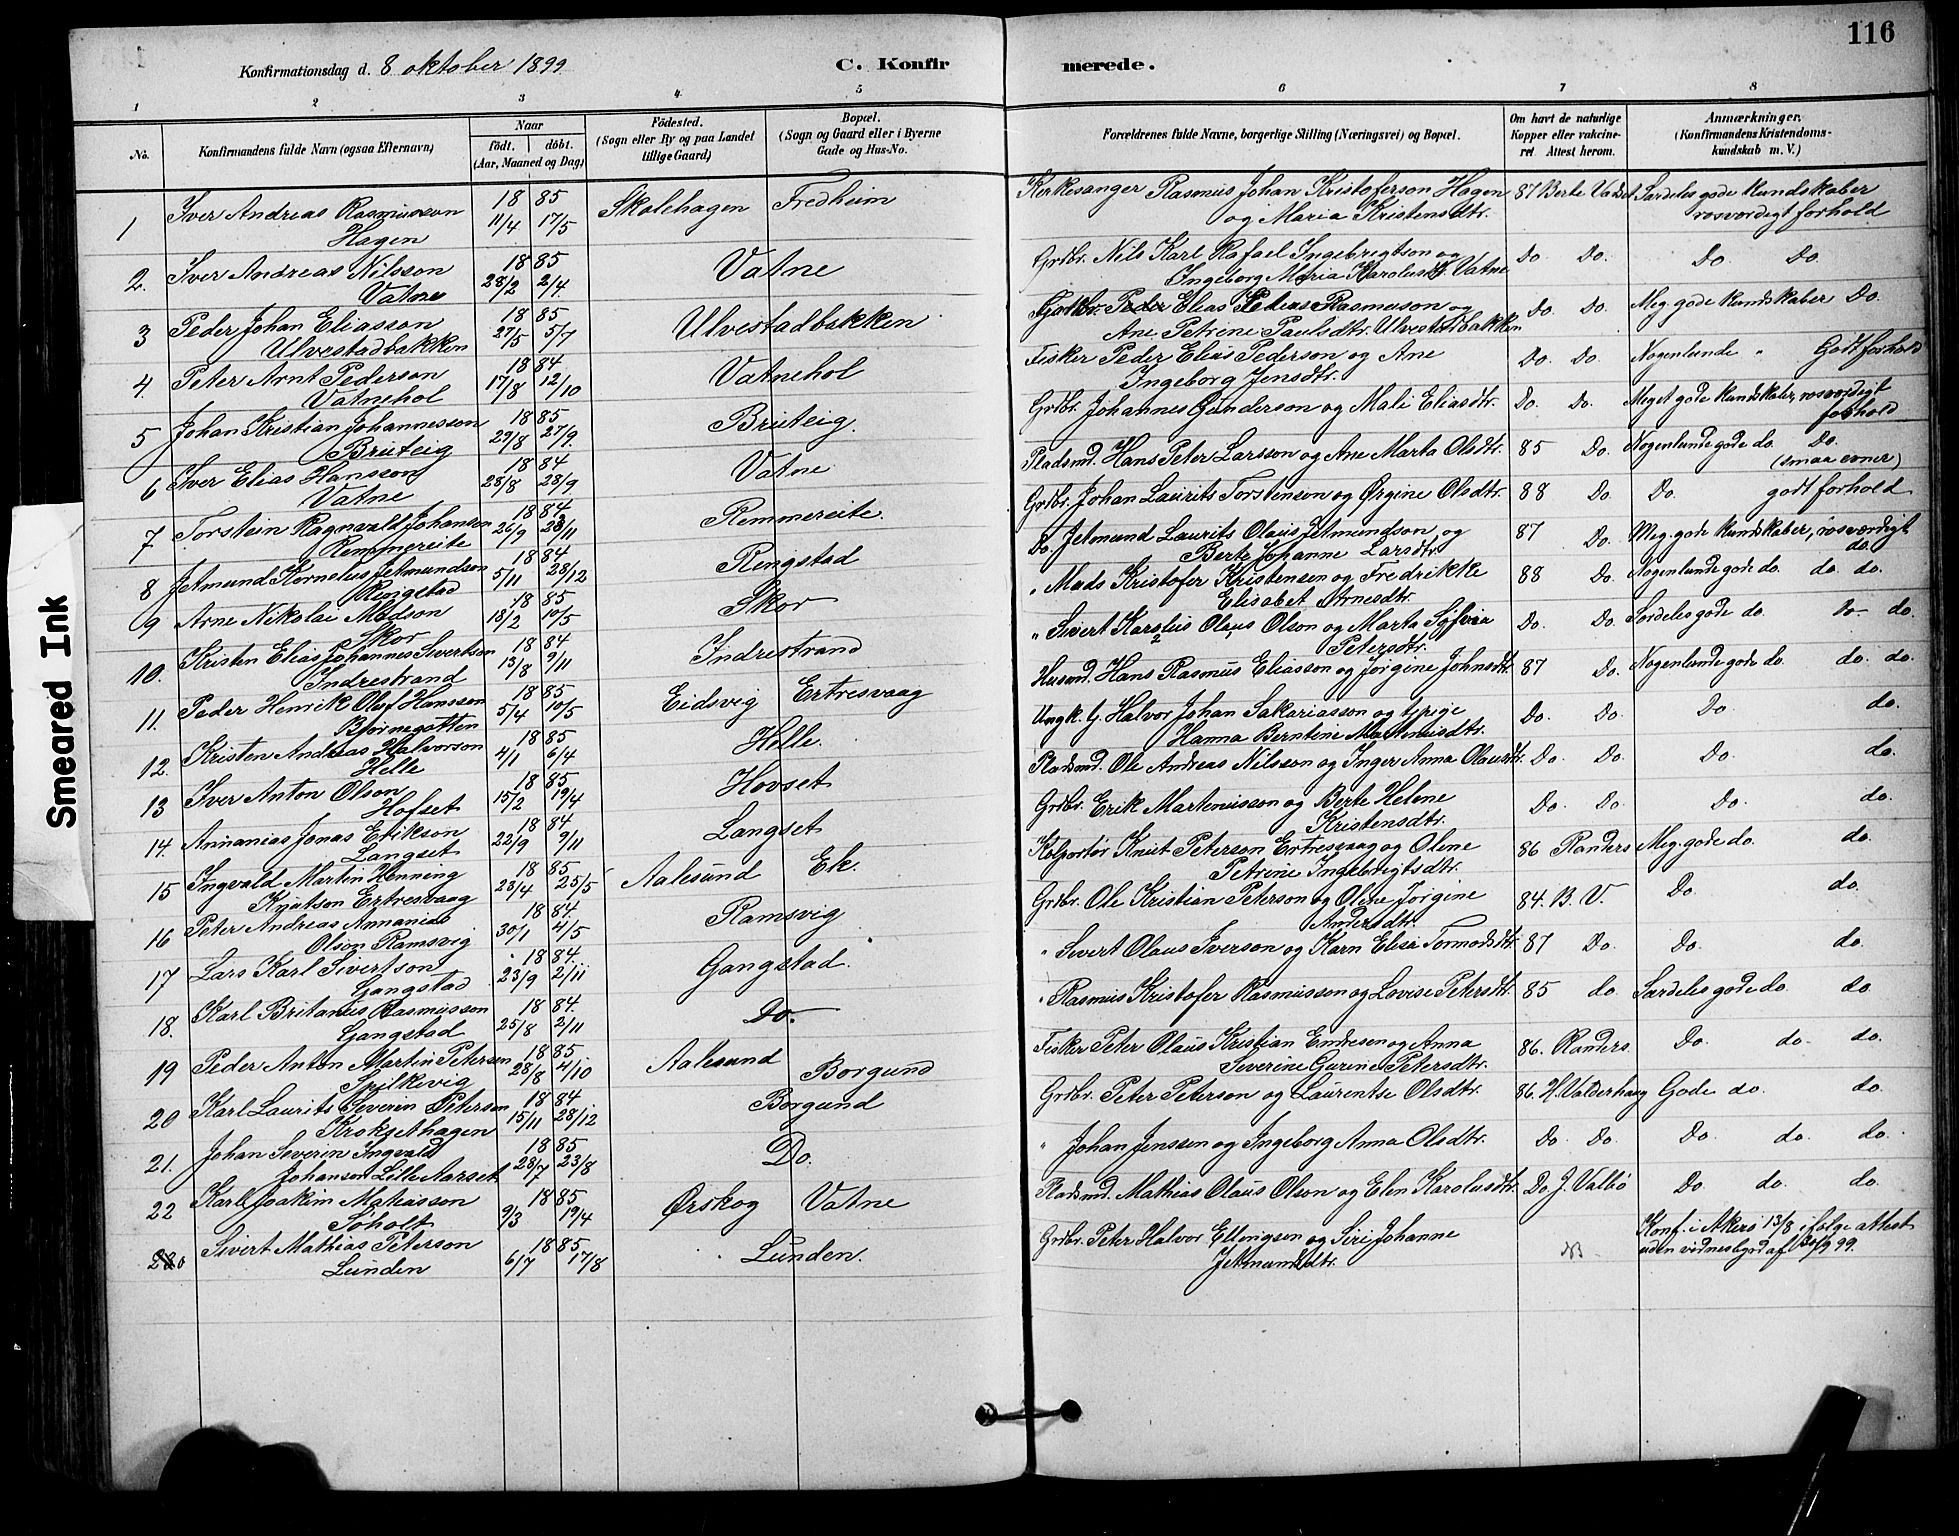 116
Konfirmationsdag d. 8 oktober 1899
C. Konfirmerede.
1 2 3 4 5 6 7 8
No. Konfirmandens fulde Navn (ogsaa Efternavn) Naar født. døbt. (Aar, Maaned og Dag) Fødested. (Sogn eller By og paa Landet tillige Gaard) Bopæl. (Sogn og Gaard eller i Byerne Gade og Hus-No. Forældrenes fulde Navne, borgerlige Stilling (Næringsvei) og Bopæl. Om havt de naturlige Kopper eller vakcineret Attest herom. Anmærkninger. (Konfirmandens Kristendomskundskab m. V.)
1 Iver Andreas Rasmusson Hagen 1885 11/4 17/5 Skolehagen Fredheim Kirkesanger Rasmus Johan Kristoferson Hagen og Maria Kristensdtr. 87 Berte Vadset Særdeles gode kundskaber rosværdigt forhold
2. Iver Andreas Nilsson Vatne 1885 28/2 2/4. Vatne Grdbr. Nils Karl Rafael Ingebrigtson og Ingeborg Maria Karolusdtr. Vatne Do. Do. Do. Do.
3 Peder Johan Eliasson Ulvestadbakken 1885 27/5 5/7 Ulvestadbakken Gjordbr. Peder Elias Rasmuson og Ane Petrine Paulsdtr. Ulvestadbakken Do. Do. Meg. gode kundskaber Do.
4. Peter Arnt Pederson Vatnehol 1884 17/8 12/10 Vatnehol Fisker Peder Elias Pederson og Ane Ingeborg Jensdtr. Do. Do. Nogenlunde " Godt forhold
5 Johan Kristian Johannesson Bruteig 1885 29/8 27/9. Bruteig. Grdbr. Johannes Gunderson og Mali Eliasdtr. Do. Do. Meget gode kundskaber, rosværdigt forhold
6 Iver Elias Hansson Vatne 1884 28/8 28/9 Vatne Pladsmd. Hans Peter Larsson og Ane Marta Olsdtr. 85 Do. Nogenlunde gode do. Do. (smaa evner)
7 Torstein Ragnvald Johansen Remmereite 1884 26/9 23/11 Remmereite. Grdbr. Johan Laurits Torstenson og Ørgine Olsdtr. 88 Do. Do. godt forhold
8 Jetmund Kornelius Jetmundson Ringstad 1884 5/11 28/12 Ringstad Do. Jetmund Laurits Olaus Jetmundson og Berte Johanne Larsdtr. 87 Do. Meg. gode kundskaber, rosværdigt do.
9 Arne Nikolai Madson Skor 1885 18/2 10/5 Skor " Mads Kristofer Kristensen og Fredrikke Elisabet Arnesdtr. 88 Do. Nogenlunde gode do. do. do.
10. Kristen Elias Johannes Sivertson Indrestrand 1884 13/8 9/11 Indrestrand " Sivert Karolus Olaus Olson og Marta Sylvia Petersdtr. Do. Do. Særdeles gode do. do. do.
11. Peder Henrik Olaf Hansson Bjørnegotten 1885 5/4 10/5 Eidsvig Ertresvaag Husmd. Hans Rasmus Eliasson og Jørgine Johnsdtr. 87 Do. Nogenlunde gode do. do. do.
12. Kristen Andreas Halvorson Helle 1885 4/1 6/4 Helle. Ungk. G. Halvor Johan Sakariasson og pige Hanna Berntine Martinusdtr. Do. Do. Do. do.
13 Iver Anton Olson Hofset 1885 15/2 19/4 Hovset Pladsmd. Ole Andreas Nilsson og Inger Anna Olausdtr. Do. Do. Do. do.
14. Annanias Jonas Erikson Langset 1884 22/9 9/11 Langset Grdbr. Erik Martinusson og Berte Helene Kristensdtr. Do. Do. Do. do.
15 Ingvald Martin Henning Knutson Ertresvaag 1885 23/4 25/5 Aalesund Ek. Kolportør Knut Peterson Ertresvaag og Oline Petrine Ingebrigtsdtr. 86 Randers Meg. gode do. do.
16 Peter Andreas Annanias Olson Ramsvig 1884. 30/1 4/5 Ramsvig Grdbr. Ole Kristian Peterson og Oline Jørgine Andersdtr. 84. B. V. Do. do.
17 Lars Karl Sivertson Gangstad 1884. 23/9 2/11 Gangstad. " Sivert Olaus Iverson og Karn Elisa Tormodsdtr. 87 Do. Do. do.
18. Karl Britanus Rasmusson Gangstad 1884. 25/8 2/11 Do. " Rasmus Kristofer Rasmusson og Lovise Petersdtr. 85 do. Særdeles gode do. do.
19 Peder Anton Martin Petersen Spilkevig 1885 28/8 4/10 Aalesund Borgund Fisker Peter Olaus Kristian Endresen og Anna Severine Gurine Petersdtr. 86. Randers. Do. do. do.
20 Karl Laurits Severin Peterson Kroksethagen 1884 15/11 28/12 Borgund Grdbr. Peter Peterson og Laurentse Olsdtr. 86. H. Valderhaug Gode do. do.
21. Johan Severin Ingvald Johanson Lille Aarset 1885 28/7 23/8 Do. " Johan Jenssen og Ingeborg Anna Olsdtr. Do. Do. Do. do. do.
22 Karl Joakim Mathisson Søholt 1885 9/3 19/4 Ørskog Vatne Pladsmd. Mathias Olaus Olson og Elen Karolusdtr. Do. J. Valbø Do. do. do.
Sivert Mathias Peterson Lunden 1885 6/7 17/8 Lunden. Grdbr. Peter Halvor Ellingsen og Siri Johanne Jetmundsdtr. Konf. i Akerø 13/8 ifølge attest uden vidnesbyrd af 30/9 99.
Smeared Ink